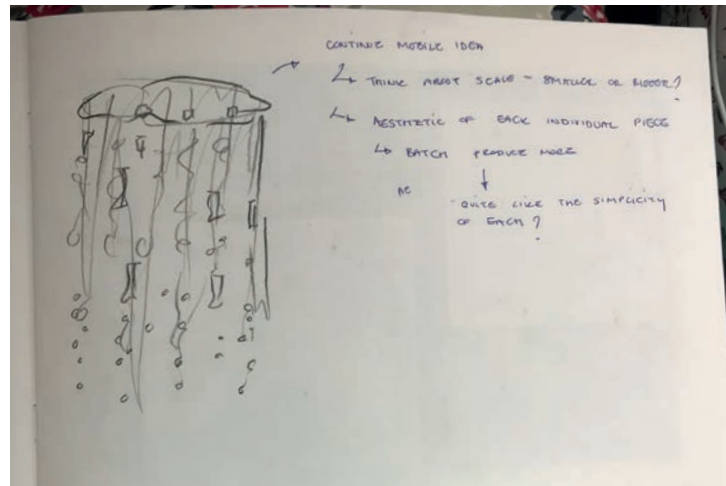 CONTINUE MOBILE IDEA
THINK ABOUT SCALE - SMALLER OR BIGGER?
AESTHETIC OF EACH INDIVIDUAL PIECE
BATCH PRODUCE MORE
QUITE LIKE THE SIMPLICITY
OF EACH?